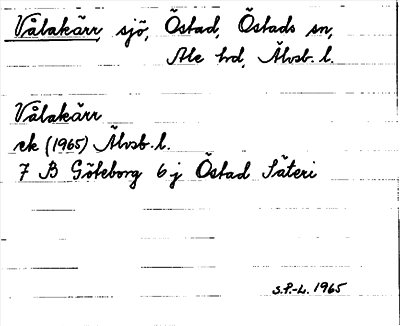 Vålakärr, sjö, Östad, Östads sn,
Ale hd, Älvsb. l.
Vålakärr
ek (1965) Älvsb. l.
7 B Göteborg 6 j Östad Säteri
S.P.-L. 1965